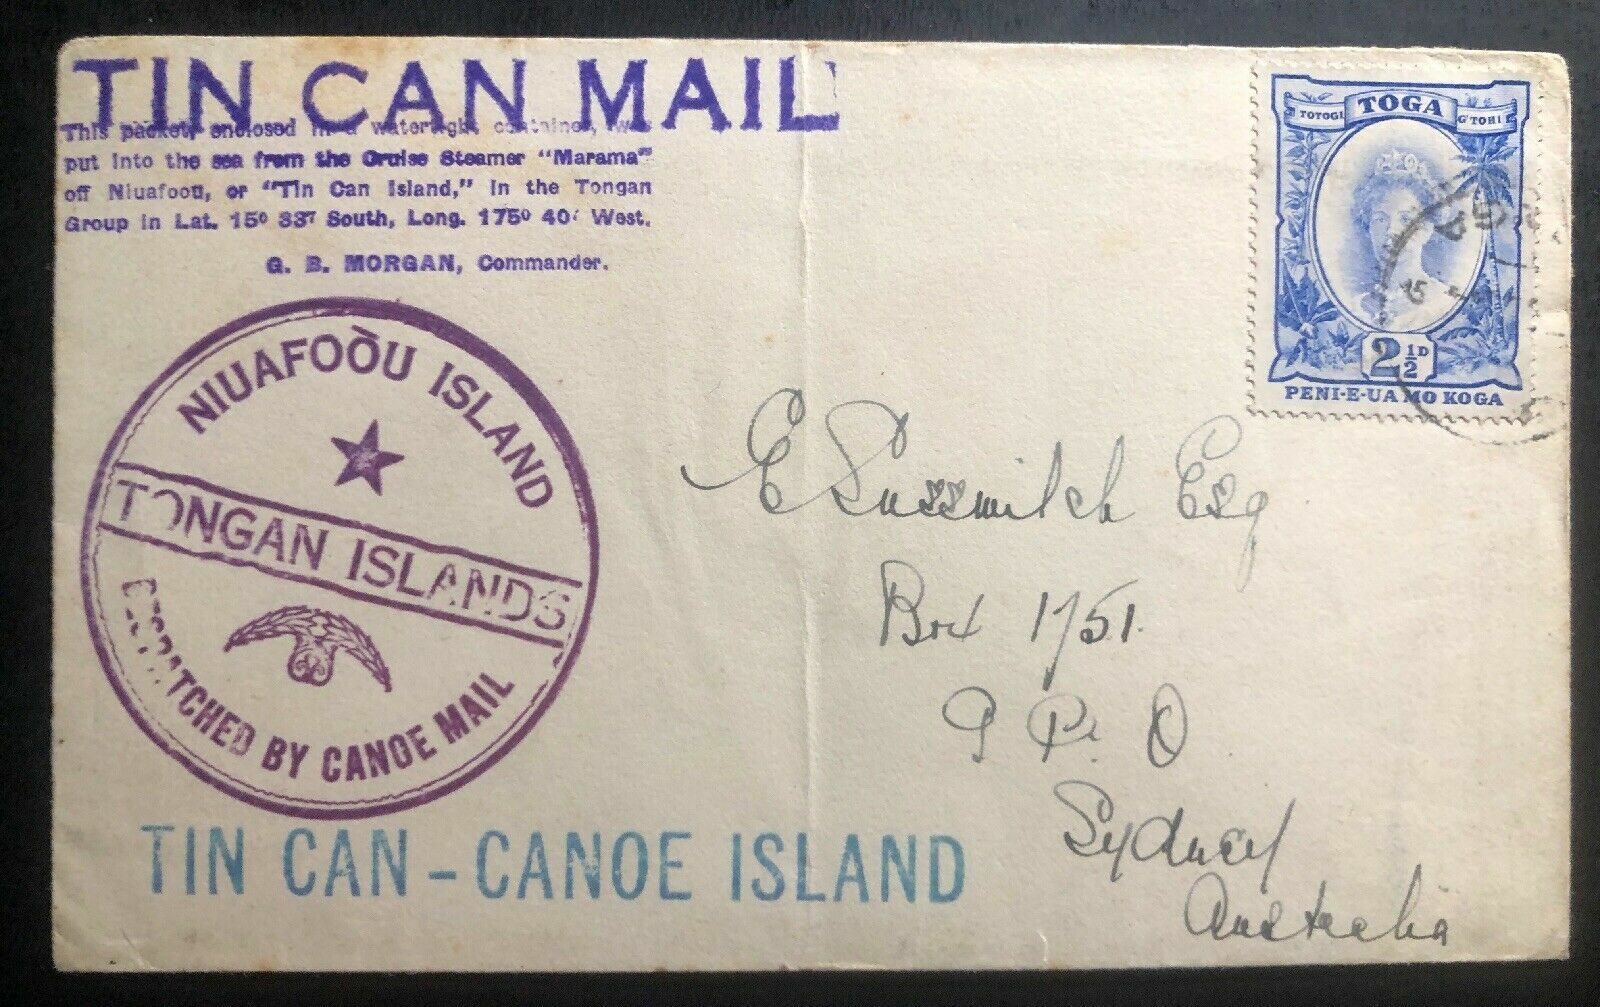 TIN CAN MAIL
This packet, enclosed in a watertight container, was
put into the sea from the Cruise Steamer "Marama"
off Niuafoou, or "Tin Can Island," in the Tongan
Group in Lat. 15° 33' South, Long. 175° 40' West.
G. B. MORGAN, Commander.
TOGA
TOTOGI
G'TOHI
2½D
PENI-E-UA MO KOGA
NIUAFOÒU ISLAND
TONGAN ISLANDS
DESPATCHED BY CANOE MAIL
TIN CAN - CANOE ISLAND
E Sussmilch Esq
Box 1751.
G P. O
Sydney
Australia